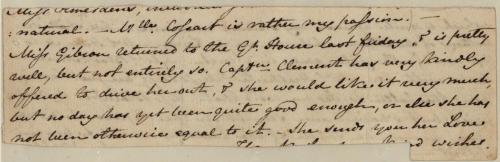 Miss
natural. — Mlle Cossart is rather my passion. —
Miss Gibson returned to the Gt. House last friday, & is pretty
well, but not entirely so. Captn. Clement has very kindly
offered to drive her out, & she would like it very much,
but no day has yet been quite good enough, or else she has
not been otherwise equal to it. — She sends you her Love
kind wishes.